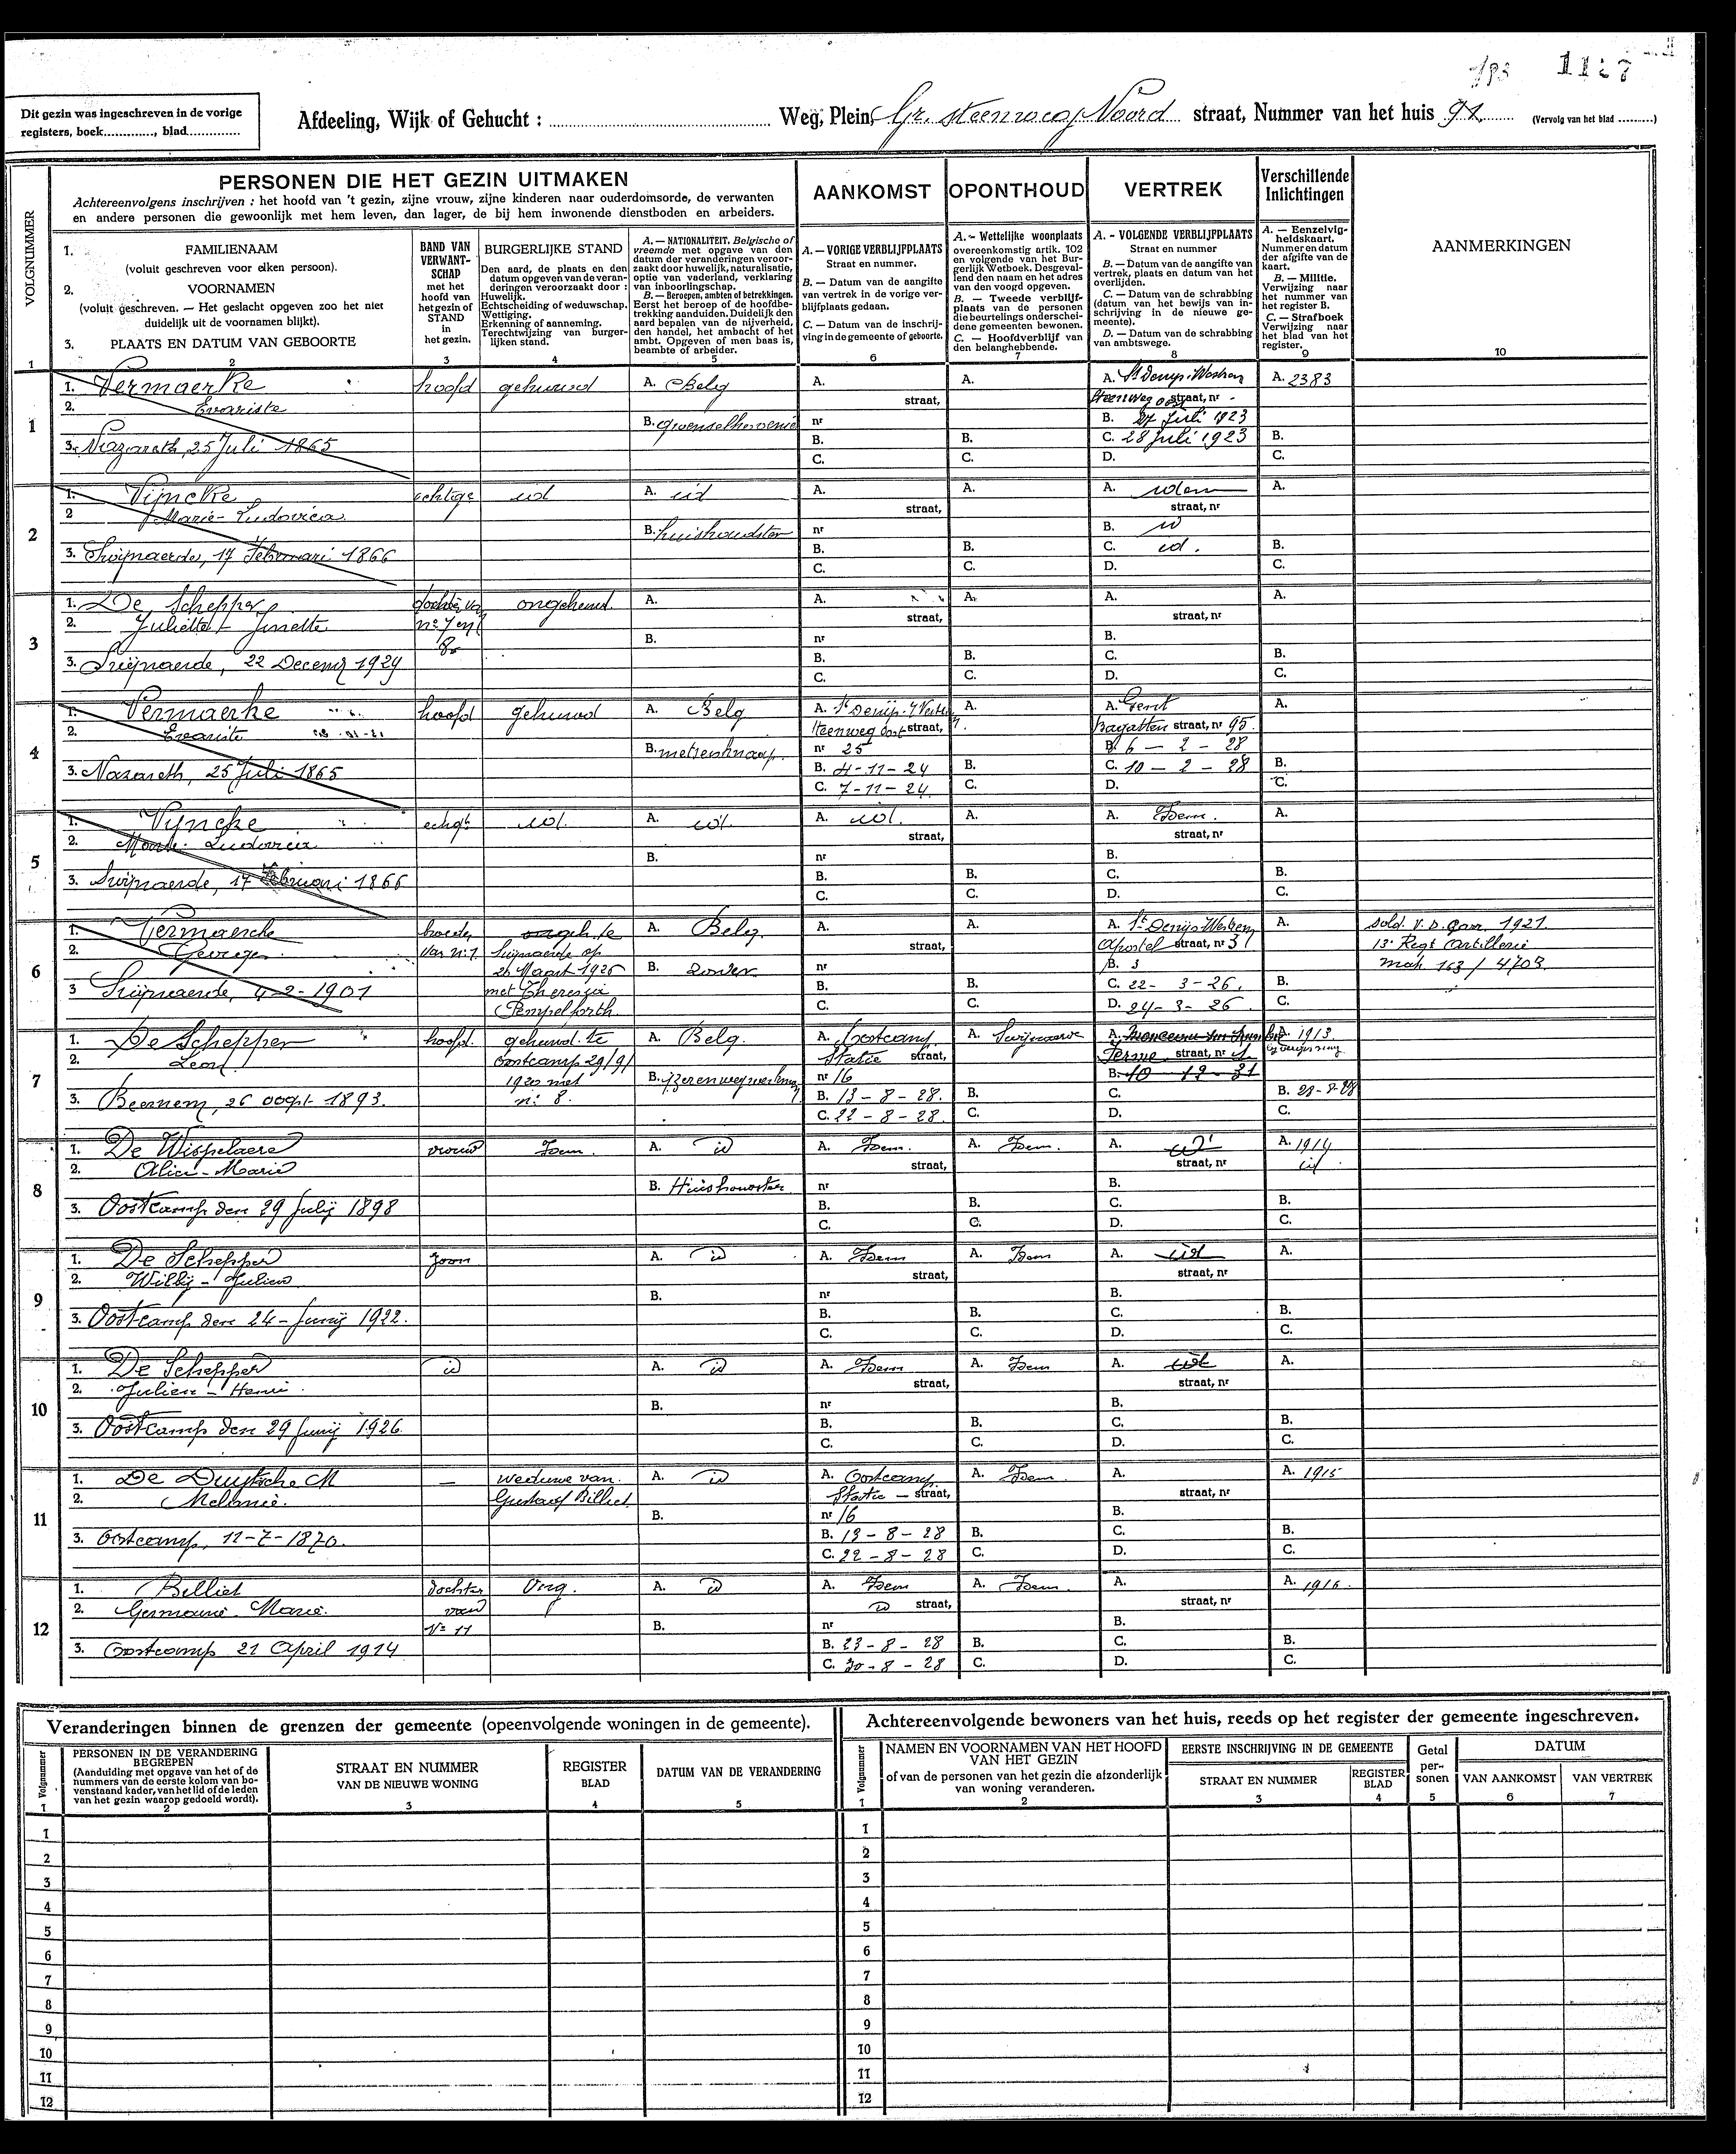 193 1127
Dit gezin was ingeschreven in de vorige
registers, boek............, blad..............
Afdeeling, Wijk of Gehucht : Weg, Plein, Gr. steenweg Noord straat, Nummer van het huis 92 (Vervolg van het blad ..........)
VOLGNUMMER
PERSONEN DIE HET GEZIN UITMAKEN
Achtereenvolgens inschrijven : het hoofd van 't gezin, zijne vrouw, zijne kinderen naar ouderdomsorde, de verwanten
en andere personen die gewoonlijk met hem leven, dan lager, de bij hem inwonende dienstboden en arbeiders.
AANKOMST
OPONTHOUD
VERTREK
Verschillende
Inlichtingen
1. FAMILIENAAM
(voluit geschreven voor elken persoon).
2. VOORNAMEN
(voluit geschreven. — Het geslacht opgeven zoo het niet
duidelijk uit de voornamen blijkt).
3. PLAATS EN DATUM VAN GEBOORTE
BAND VAN
VERWANT-
SCHAP
met het
hoofd van
het gezin of
STAND
in
het gezin.
BURGERLIJKE STAND
Den aard, de plaats en den
datum opgeven van de veran-
deringen veroorzaakt door :
Huwelijk.
Echtscheiding of weduwschap.
Wettiging.
Erkenning of aanneming.
Terechtwijzing van burger-
lijken stand.
A. — NATIONALITEIT. Belgische of
vreemde met opgave van den
datum der veranderingen veroor-
zaakt door huwelijk, naturalisatie,
optie van vaderland, verklaring
van inboorlingschap.
B. — Beroepen, ambten of betrekkingen.
Eerst het beroep of de hoofdbe-
trekking aanduiden. Duidelijk den
aard bepalen van de nijverheid,
den handel, het ambacht of het
ambt. Opgeven of men baas is,
beambte of arbeider.
A. — VORIGE VERBLIJFPLAATS
Straat en nummer.
B. — Datum van de aangifte
van vertrek in de vorige ver-
blijfplaats gedaan.
C. — Datum van de inschrij-
ving in de gemeente of geboorte.
A. - Wettelijke woonplaats
overeenkomstig artik. 102
en volgende van het Bur-
gerlijk Wetboek. Desgeval-
lend den naam en het adres
van den voogd opgeven.
B. — Tweede verblijf-
plaats van de personen
die beurtelings onderschei-
dene gemeenten bewonen.
C. — Hoofdverblijf van
den belanghebbende.
A. - VOLGENDE VERBLIJFPLAATS
Straat en nummer
B. — Datum van de aangifte van
vertrek, plaats en datum van het
overlijden.
C. — Datum van de schrabbing
(datum van het bewijs van in-
schrijving in de nieuwe ge-
meente).
D. — Datum van de schrabbing
van ambtswege.
A. — Eenzelvig-
heidskaart.
Nummer en datum
der afgifte van de
kaart.
B. — Militie.
Verwijzing naar
het nummer van
het register B.
C. — Strafboek
Verwijzing naar
het blad van het
register.
AANMERKINGEN
1 2 3 4 5 6 7 8 9 10
1
1. Vermaerke hoofd gehuwd A. Belg A. A. A. St Denys-Westrem A. 2383
2. Evariste straat, Steenweg oost straat, nr -
B. nr B. 27 Juli 1923
3. Nazareth, 25 Juli 1865 B. B. C. 28 Juli 1923 B.
C. C. D. C.
2
1. Vijncke echtge id A. id A. A. A. idem A.
2 Marie-Ludovica straat, straat, nr
B. huishoudster nr B. id
3. Swijnaerde, 17 Februari 1866 B. B. C. id. B.
C. C. D. C.
3
1. De Schepper dochter van ongehuwd. A. A. A. A. A.
2. Juliette - Jinette nr 7 en straat, straat, nr
8. B. nr B.
3. Swijnaerde, 22 Decemb 1929 B. B. C. B.
C. C. D. C.
4
1. Vermaerke hoofd gehuwd A. Belg A. St Denijs-Westr. A. A. Gent A.
2. Evariste Steenweg oost straat, Bagatten straat, nr 95.
B. metserknaap. nr 25 B. 6 - 2 - 28
3. Nazareth, 25 Juli 1865 B. 4-11-24 B. C. 10 - 2 - 28 B.
C. 7-11-24 C. D. C.
5
1. Vyncke echgte id. A. id. A. id. A. A. Idem. A.
2. Marie Ludovica straat, straat, nr
B. nr B.
3. Swijnaerde, 17 Februari 1866 B. B. C. B.
C. C. D. C.
6
1. Vermaercke broeder geh. te A. Belg. A. A. A. St Denijs-Westrem A. sold. v. d. 1921.
2. George van nr 1 Swijnaerde op straat, Apostel straat, nr 31 13e Regt Artillerie
26 Maart 1926 B. zonder nr B. 3 mah 163 / 4703.
3 Swijnaerde, 4-2-1901 met Theresia B. B. C. 22- 3-26. B.
Pempelforth. C. C. D. 24-3-26 C.
7
1. De Schepper hoofd. gehuwd te A. Belg. A. Oostcamp A. Swijnaerde A. A. 1913.
2. Leon Oostcamp 29/9/ Statie straat, Ferme straat, nr
1920 met B. Yzerenwegwerkman nr 16 B. 10 - 12 - 31
3. Beernem, 26 oogst 1893. nr 8. B. 13 - 8 - 28. B. C. B. 29-8-28
C. 22 - 8 - 28. C. D. C.
8
1. De Wispelaere vrouw Idem. A. id A. Idem. A. Idem. A. id A. 1914
2. Alice-Marie straat, straat, nr id
B. Huishoudster nr B.
3. Oostcamp den 29 July 1898 B. B. C. B.
C. C. D. C.
9
1. De Schepper zoon A. id A. Idem A. Idem A. id A.
2. Willy - Julien straat, straat, nr
B. nr B.
3. Oostcamp den 24-Junij 1922. B. B. C. B.
C. C. D. C.
10
1. De Schepper id A. id A. Idem A. Idem A. id A.
2. Julien - Henri straat, straat, nr
B. nr B.
3. Oostcamp den 29 Junij 1926. B. B. C. B.
C. C. D. C.
11
1. De Duytsche M — weduwe van. A. id A. Oostcamp A. Idem. A. A. 1915
2. Melanie. Gustaaf Billiet. Statie — straat, straat, nr
B. nr 16 B.
3. Oostcamp, 11-7-1870. B. 13 - 8 - 28 B. C. B.
C. 22 - 8 - 28 C. D. C.
12
1. Billiet dochter Ong. A. id A. Idem A. Idem. A. A. 1916.
2. Germaine Marie. van id straat, straat, nr
Nr 11 B. nr B.
3. Oostcamp 21 April 1914 B. 23-8-28 B. C. B.
C. 30-8-28 C. D. C.
Veranderingen binnen de grenzen der gemeente (opeenvolgende woningen in de gemeente).
Volgnummer
PERSONEN IN DE VERANDERING
BEGREPEN
(Aanduiding met opgave van het of de
nummers van de eerste kolom van bo-
venstaand kader, van het lid of de leden
van het gezin waarop gedoeld wordt).
STRAAT EN NUMMER
VAN DE NIEUWE WONING
REGISTER
BLAD
DATUM VAN DE VERANDERING
1 2 3 4 5
1
2
3
4
5
6
7
8
9
10
11
12
Achtereenvolgende bewoners van het huis, reeds op het register der gemeente ingeschreven.
Volgnummer
NAMEN EN VOORNAMEN VAN HET HOOFD
VAN HET GEZIN
of van de personen van het gezin die afzonderlijk
van woning veranderen.
EERSTE INSCHRIJVING IN DE GEMEENTE
STRAAT EN NUMMER
REGISTER
BLAD
Getal
per-
sonen
DATUM
VAN AANKOMST
VAN VERTREK
1 2 3 4 5 6 7
1
2
3
4
5
6
7
8
9
10
11
12